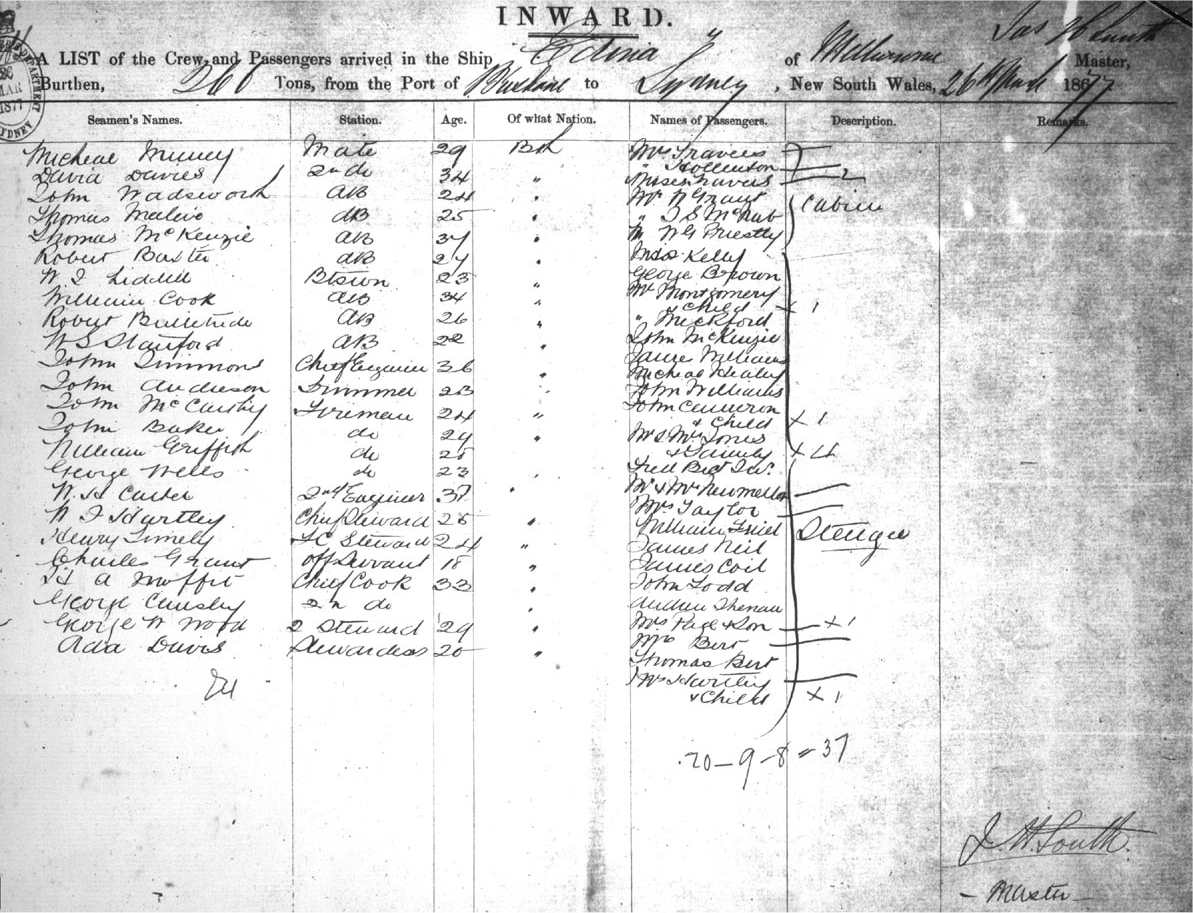 INWARD.
A LIST of the Crew and Passengers arrived in the Ship Edina of Melbourne Jas H South Master,
Burthen, 260 Tons, from the Port of Brisbane to Sydney, New South Wales, 26th March 1877
Seamen's Names. Station. Age. Of what Nation. Names of Passengers. Description. Remarks.
Micheal Mate 29 Bth Mrs Travers
David Davies 2nd do 34 " " Hollinton 2
John Wadsworth AB 24 " Misses Travers
Thomas AB 25 " Mr N Grant Cabin
Thomas McKenzie AB 37 " " J S McNab
Robert Baxter AB 27 " Mr W G Priestly
W J Liddell Btswn 23 " Miss Kelly
William Cook AB 34 " George Brown
Robert AB 26 " Mr Montgomery
W S Stanford AB 22 " & Child X 1
John Simmons Chief Engineer 36 " " Mickford
John Andreson Trimmer 23 " John McKenzie
John McCarthy Fireman 24 " James Williams
John Baker do 29 " Micheal Healey
William Griffith do 25 John Williams
George Wells do 23 " John Cameron
W. H Carter 2nd Engineer 37 " & Child X 1
W J Hartley Chief Steward 25 " Mr & Mrs Jones
Henry Timely F C Steward 24 " & Family X 4
Charles Grant Off Servant 18 " Fred
H A Moffit Chief Cook 33 " Mr & Mrs
George 2n do Mrs Taylor
George W Wood 2 Steward 29 " William Steerage
Ada Davis Stewardess 20 " James Neil
24
James Coil
John Todd
Andrew
Mrs Page & Son X 1
Mrs Bert
Thomas Bert
Mrs Hartley
& Child X 1
20 - 9 - 8 = 37
J H South
- Master -